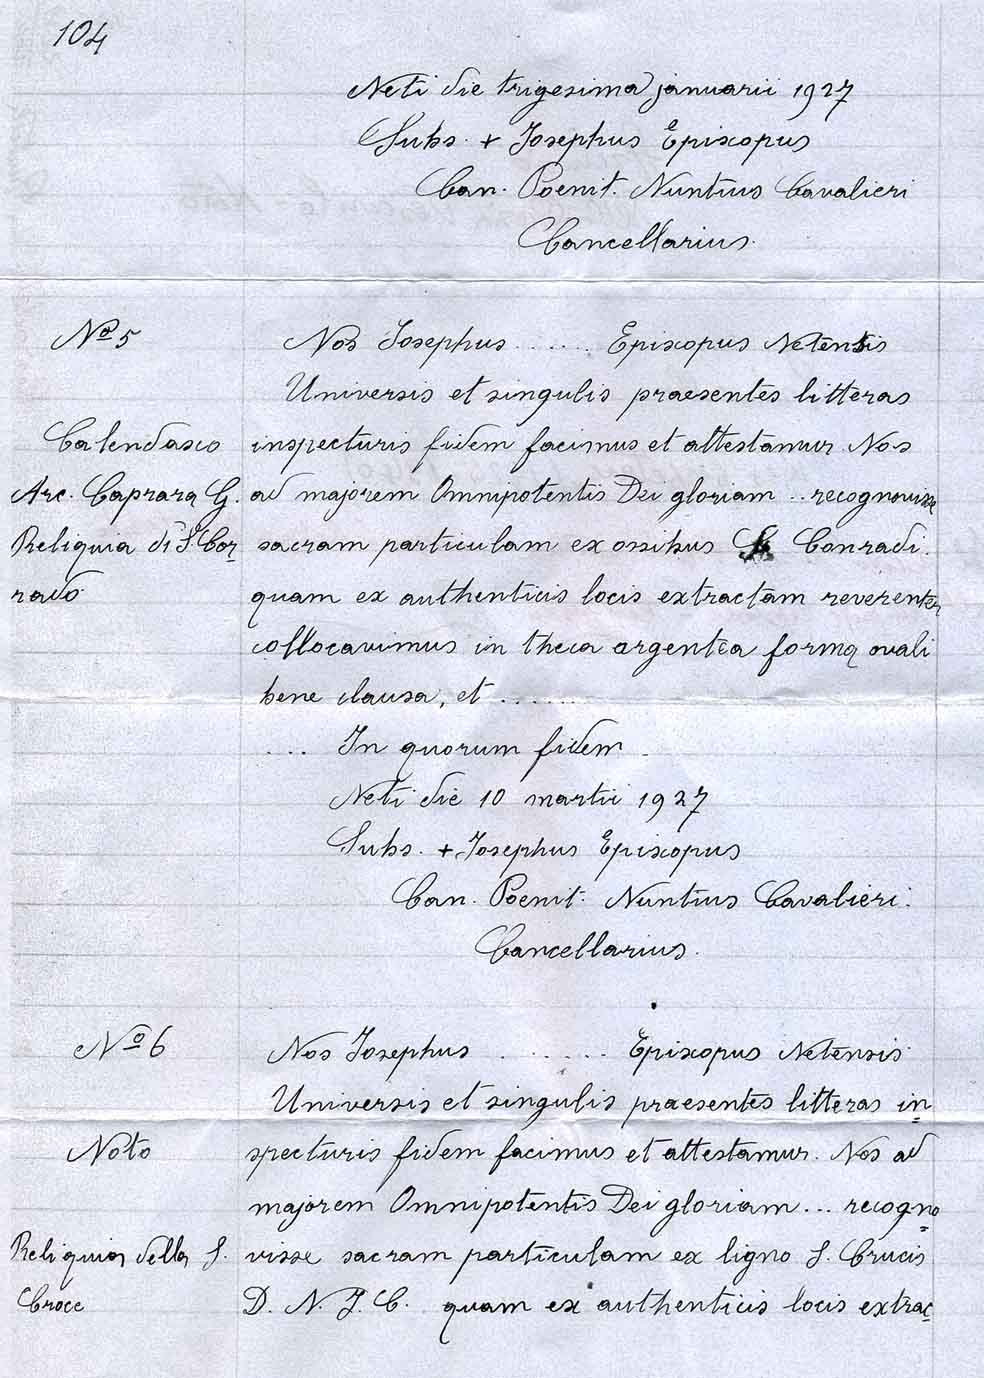 104
Neti die trigesima januarii 1927
Subs. + Josephus Episcopus
Can. Poenit. Nuntius Cavalieri
Cancellarius.
Nº 5
Nos Josephus ...... Episcopus Netensis
Universis et singulis praesentes litteras
Calendasco
inspecturis fidem facimus et attestamur Nos
Arc. Caprara G.
ad majorem Omnipotentis Dei gloriam .. recognovisse
Reliquia di S. Cor
sacram particulam ex ossibus S. Conradi.
rado
quam ex authenticis locis extractam reverenter
collocavimus in theca argentea forma ovali
bene clausa, et ......
... In quorum fidem
Neti die 10 martii 1927
Subs. + Josephus Episcopus
Can. Poenit. Nuntius Cavalieri.
Cancellarius.
Nº 6
Nos Josephus ...... Episcopus Netensis
Universis et singulis praesentes litteras in=
Noto
specturis fidem facimus et attestamur. Nos ad
majorem Omnipotentis Dei gloriam ... recogno=
Reliquia della S.
visse sacram particulam ex ligno S. Crucis
Croce
D. N. J. C. quam ex authenticis locis extrac=